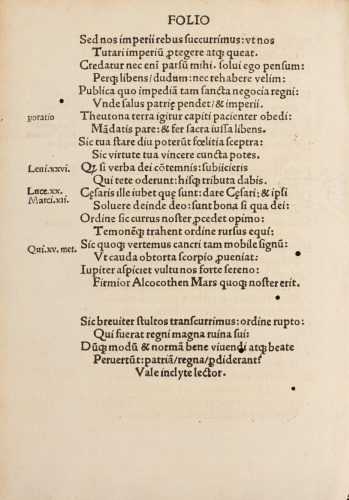 FOLIO
Sed nos imperii rebus succurrimus: vt nos
Tutari imperiū ꝓtegere atqꝫ queat.
Credatur nec eni parsū mihi. solui ego pensum:
Perqꝫ libens/dudum: nec rehabere velim:
Publica quo impediā tam sancta negocia regni:
Vnde salus patrię pendet/& imperii.
poratio
Theutona terra igitur capiti pacienter obedi:
Mādatis pare: & fer sacra iussa libens.
Sic tua stare diu poterūt fœlitia sceptra:
Sic virtute tua vincere cuncta potes.
Leui.xxvi.
Qꝫ si verba dei cōtemnis: subiicieris
Qui tete oderunt: hisqꝫ tributa dabis.
Luce.xx.
Marci.xii.
Cęsaris ille iubet quę sunt: dare Cęsari; & ipsi
Soluere deinde deo: sunt bona si qua dei:
Ordine sic currus noster ꝓcedet opimo:
Temoneqꝫ trahent ordine rursus equi:
Qui.xv.met.
Sic quoqꝫ vertemus cancri tam mobile signū:
Vt cauda obtorta scorpio ꝓueniat:
Iupiter aspiciet vultu nos forte sereno:
Firmior Alcocothen Mars quoqꝫ noster erit.
Sic breuiter stultos transcurrimus: ordine rupto:
Qui fuerat regni magna ruina sui:
Dūqꝫ modū & normā bene viuendi atqꝫ beate
Peruertūt: patriā/regna/ꝑdiderant?
Vale inclyte lector.